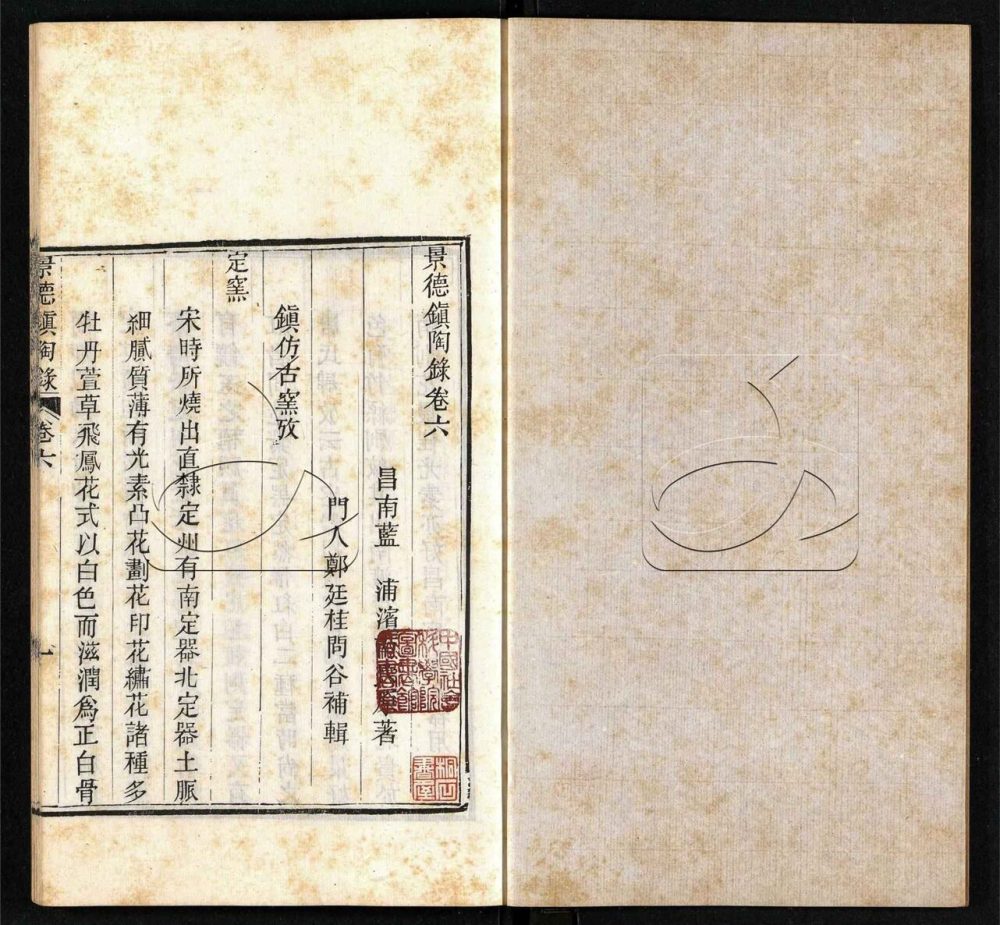 景德鎭陶錄卷六
昌南藍 浦濱 著
門人鄭廷桂問谷補輯
鎭仿古窯攷
定窯
宋時所燒出直隸定州有南定器北定器土脈
細膩質薄有光素凸花劃花印花繡花諸種多
牡丹萱草飛鳳花式以白色而滋潤爲正白骨
景德鎭陶錄 卷六 一